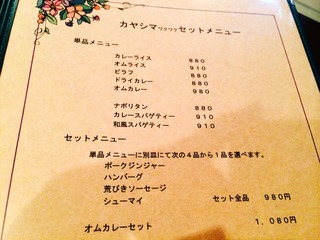 カヤシマワクワクセットメニュー
単品メニュー
カレーライス 880
オムライス 910
ピラフ 880
ドライカレー 880
オムカレー 980
ナポリタン 880
カレースパゲティー 910
和風スパゲティー 910
セットメニュー
単品メニューに別皿にて次の4品から1品を選べます。
ポークジンジャー
ハンバーグ
荒びきソーセージ
シューマイ セット全品 980円
オムカレーセット 1,080円